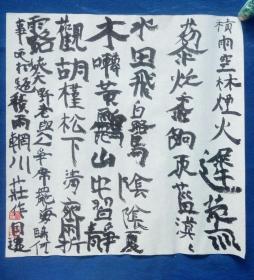 積雨空林煙火遲蒸
藜炊黍餉東菑漠々
水田飛白鷺陰陰夏
木囀黃鸝山中習靜
觀朝槿松下清齋折
露葵野老與人爭席罷海鷗何
事 積雨輞川莊作